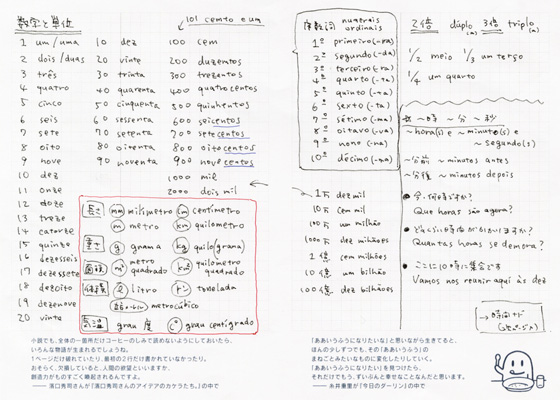 数字と単位
101 cento e um
1 um/uma 10 dez 100 cem
2 dois/duas 20 vinte 200 duzentos
3 três 30 trinta 300 trezentos
4 quatro 40 quarenta 400 quatrocentos
5 cinco 50 cinquenta 500 quinhentos
6 seis 60 sessenta 600 seicentos
7 sete 70 setenta 700 setecentos
8 oito 80 oitenta 800 oitocentos
9 nove 90 noventa 900 novecentos
10 dez 1000 mil
11 onze 2000 dois mil
12 doze
13 treze
14 catorze
15 quinze
16 dezesseis
17 dezessete
18 dezoito
19 dezenove
20 vinte
長さ mm milímetro cm centímetro
m metro km quilometro
重さ g grama kg quilo(grama)
面積 m² metro quadrado km² quilometro quadrado
体積 ℓ litro トン tonelada
metrocúbico
気温 grau 度 c° grau centígrado
小説でも、全体の一箇所だけコーヒーのしみで読めないようにしておいたら、
いろんな物語が生まれるでしょうね。
1ページだけ破れていたり、最初の2行だけ書かれていなかったり。
おそらく、欠損していると、人間の欲望といいますか、
創造力がものすごく喚起されるんですよ。
―― 濱口秀司さんが『濱口秀司さんのアイデアのカケラたち。』の中で
序数詞 numerais ordinais
1º primeiro(-ra)
2º segundo(-da)
3º terceiro(-ra)
4º quarto(-ta)
5º quinto(-ta)
6º sexto(-ta)
7º sétimo(-ma)
8º oitavo(-va)
9º nono(-na)
10º décimo(-ma)
1万 dez mil
10万 cem mil
100万 um milhão
1000万 dez milhões
2億 cem milhões
10億 um bilhão
100億 dez bilhões
2倍 dúplo(a) 3倍 triplo(a)
1/2 meio 1/3 um terço
1/4 um quarto
～時 ～分 ～秒
～hora(s) e ～minuto(s) e
～segundo(s)
～分前 ～minutos antes
～分後 ～minutos depois
今、何時ですか?
Que horas são agora?
どれくらい時間がかかりますか?
Quantas horas se demora?
ここに10時に集合です
Vamos nos reunir aqui às dez
「ああいうふうになりたいな」と思いながら生きてると、
ほんの少しずつでも、その「ああいうふう」の
まねごとみたいなものに変化したりしていく。
「ああいうふうになりたい」を見つけたら、
それだけでもう、ずいぶんと幸せなことなんだと思います。
―― 糸井重里が「今日のダーリン」の中で